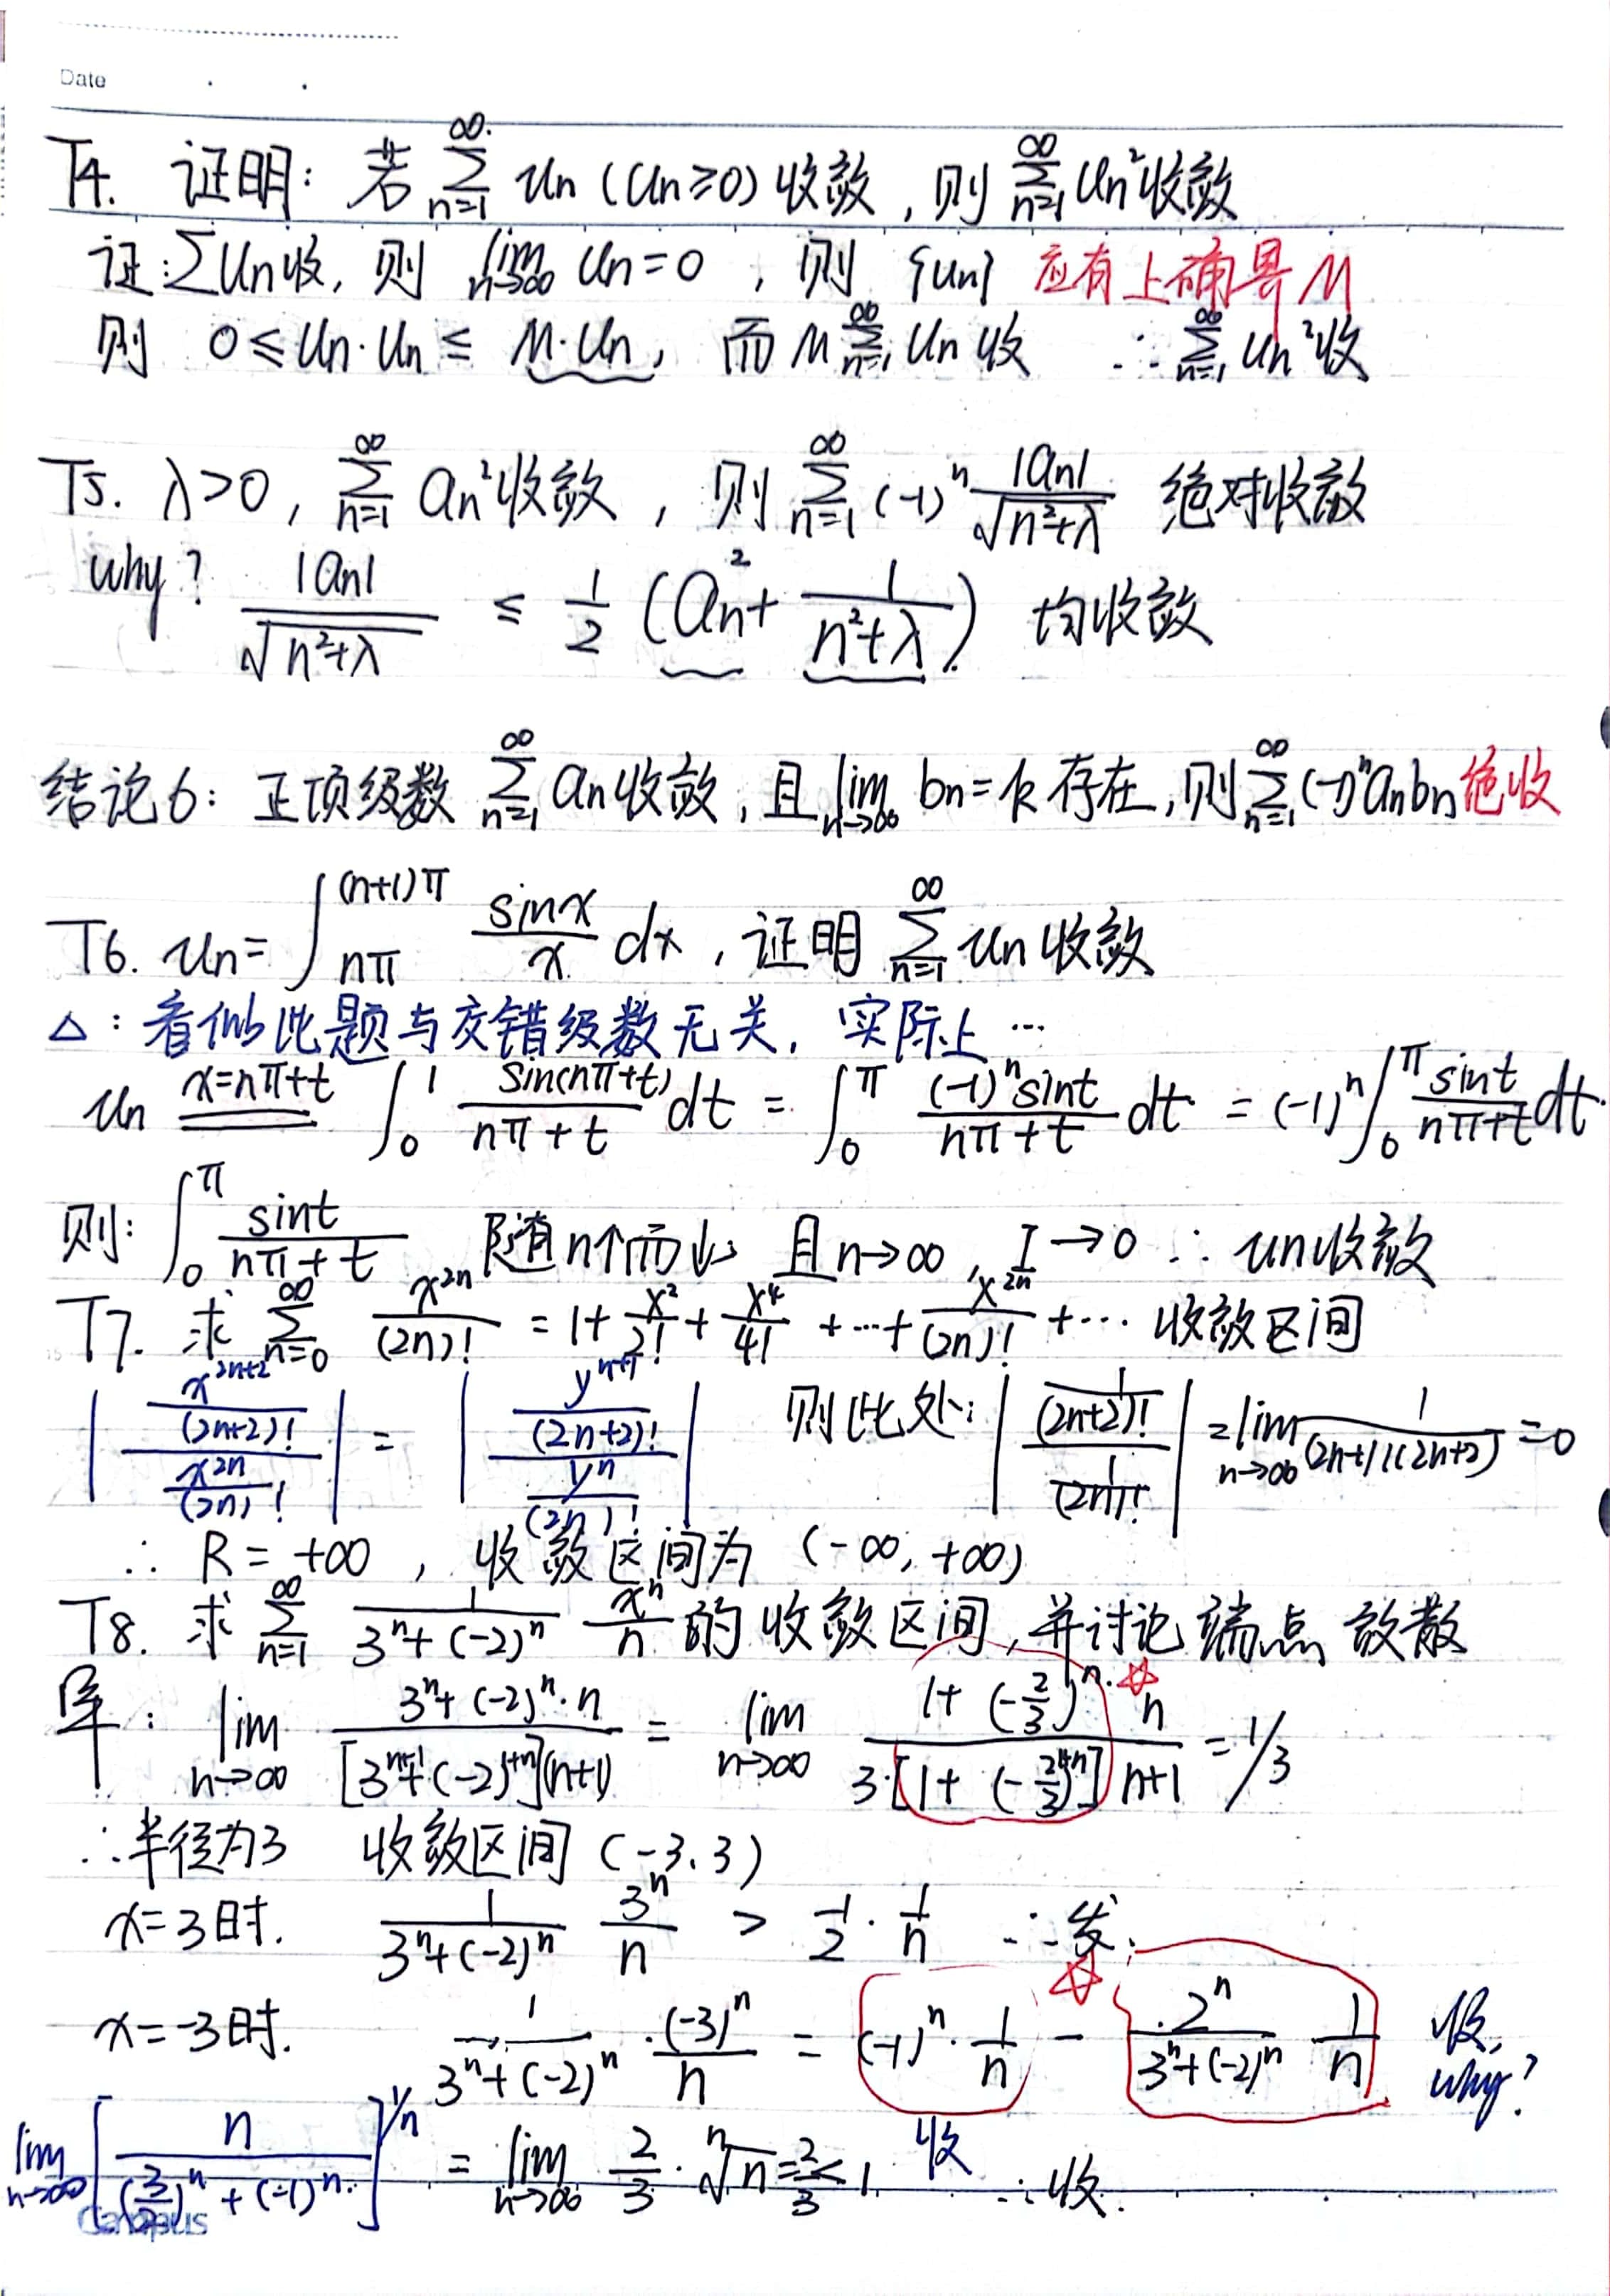 Date
T4. 证明: 若 ∑_{n=1}^{∞} Un (Un≥0) 收敛, 则 ∑_{n=1}^{∞} Un² 收敛
证: ∑Un收, 则 lim_{n→∞} Un=0, 则 {Un} 应有上确界 M
则 0≤Un·Un≤ M·Un, 而 M∑_{n=1}^{∞} Un 收 ∴ ∑_{n=1}^{∞} Un² 收
T5. λ>0, ∑_{n=1}^{∞} an² 收敛, 则 ∑_{n=1}^{∞} (-1)^n |an|/√(n²+λ) 绝对收敛
why? |an|/√(n²+λ) ≤ 1/2 (an² + 1/(n²+λ)) 均收敛
结论6: 正项级数 ∑_{n=1}^{∞} an 收敛, 且 lim_{n→∞} bn=k 存在, 则 ∑_{n=1}^{∞} (-1)^n an bn 绝收
T6. Un= ∫_{nπ}^{(n+1)π} sinx/x dx, 证明 ∑_{n=1}^{∞} Un 收敛
△: 看似此题与交错级数无关, 实际上…
Un x=nπ+t ∫_0^1 sin(nπ+t)/(nπ+t) dt = ∫_0^π (-1)^n sint/(nπ+t) dt = (-1)^n ∫_0^π sint/(nπ+t) dt.
则: ∫_0^π sint/(nπ+t) 随n↑而↓ 且n→∞, I→0 ∴ Un收敛
T7. 求 ∑_{n=0}^{∞} x^{2n}/(2n)! = 1+ x²/2! + x⁴/4! +…+ x^{2n}/(2n)! +… 收敛区间
| (x^{2n+2}/(2n+2)!) / (x^{2n}/(2n)!) | = | (y^{n+1}/(2n+2)!) / (y^n/(2n)!) | 则此处: | (1/(2n+2)!) / (1/(2n)!) | = lim_{n→∞} 1/((2n+1)(2n+2)) =0
∴ R= +∞, 收敛区间为 (-∞, +∞)
T8. 求 ∑_{n=1}^{∞} 1/(3^n+(-2)^n) x^n/n 的收敛区间, 并讨论端点敛散
解: lim_{n→∞} (3^n+(-2)^n·n)/([3^{n+1}+(-2)^{1+n}](n+1)) = lim_{n→∞} (1+(-2/3)^n · n)/(3·[1+(-2/3)^{1+n}] n+1) = 1/3
∴半径为3 收敛区间 (-3, 3)
x=3时. 1/(3^n+(-2)^n) 3^n/n > 1/2 · 1/n ∴发.
x=-3时. 1/(3^n+(-2)^n) · (-3)^n/n = (-1)^n · 1/n - 2^n/(3^n+(-2)^n) 1/n 收, why?
lim_{n→∞} [n/((3/2)^n+(-1)^n.)]^{1/n} = lim_{n→∞} 2/3 · ⁿ√n = 2/3 < 1 收 ∴收.
Canpus